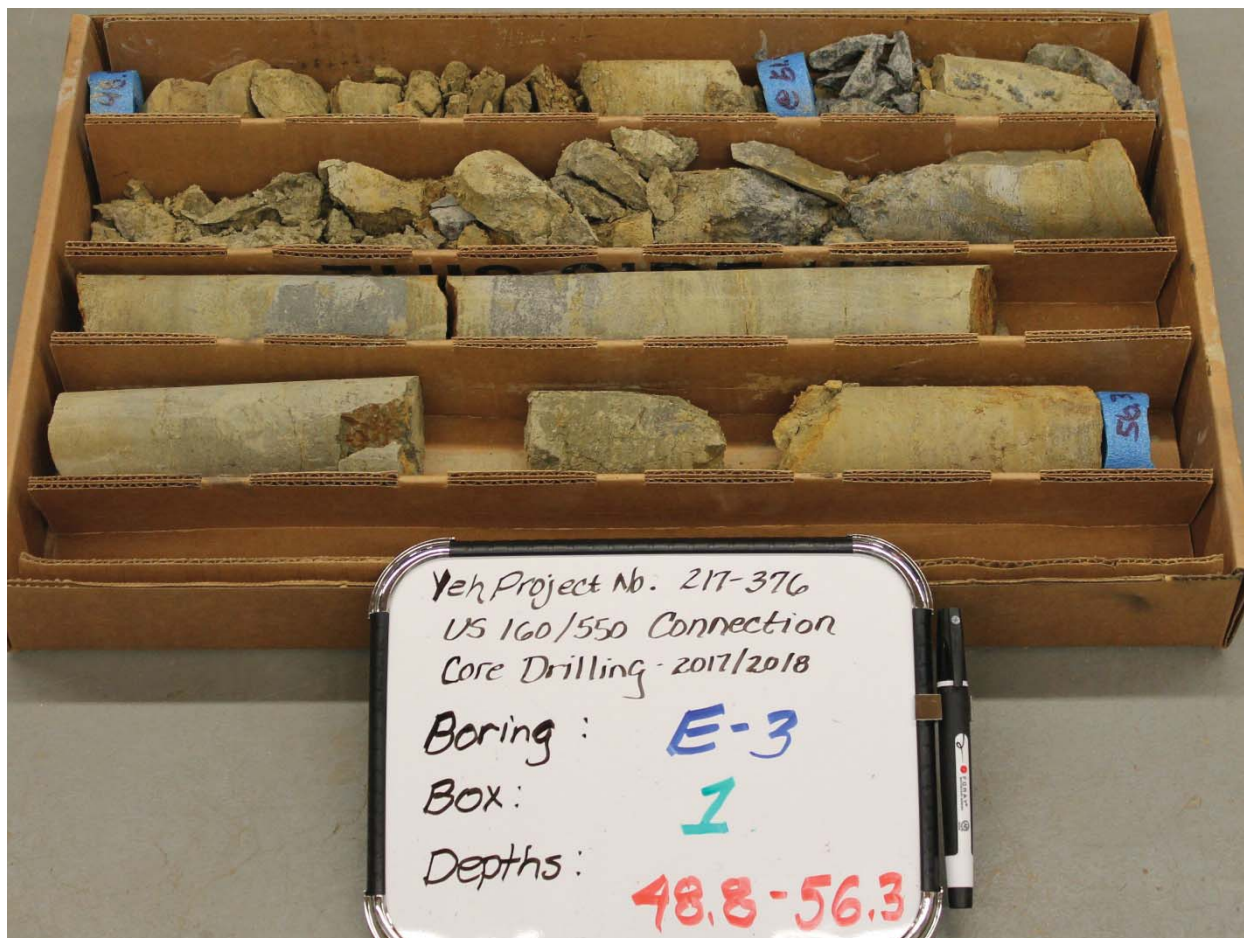 56.3
Yeh Project No. 217-376
US 160/550 Connection
Core Drilling - 2017/2018
Boring: E-3
Box: 1
Depths: 48.8-56.3